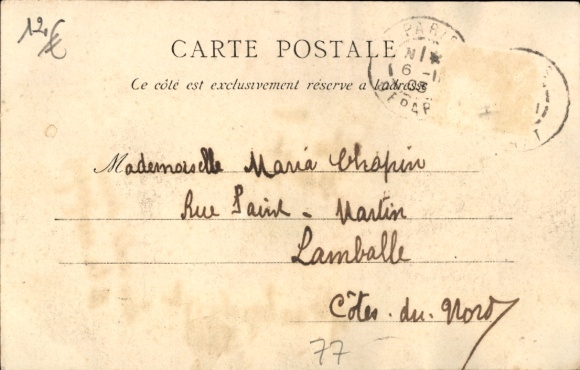 12€
PARIS
N 1
6 - 1
03
DEPAR
CARTE POSTALE
Ce côté est exclusivement réservé a l'adresse
Mademoiselle Maria Chopin
Rue Saint - Martin
Lamballe
Côtes-du-Nord
77